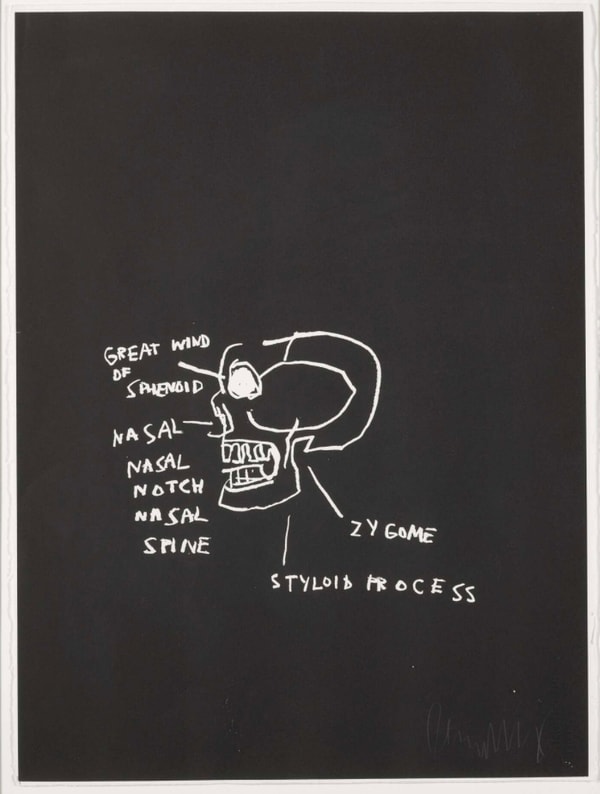 GREAT WIND
OF
SPHENOID
NASAL
NASAL
NOTCH
NASAL
SPINE
ZYGOME
STYLOID PROCESS